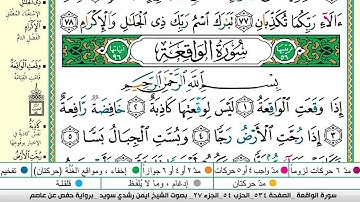 ءَالَآءِ رَبِّكُمَا تُكَذِّبَانِ ٧٧ تَبَٰرَكَ ٱسْمُ رَبِّكَ ذِى ٱلْجَلَٰلِ وَٱلْإِكْرَامِ ٧٨
سُورَةُ الوَاقِعَةِ
بِسْمِ ٱللَّهِ ٱلرَّحْمَٰنِ ٱلرَّحِيمِ
إِذَا وَقَعَتِ ٱلْوَاقِعَةُ ١ لَيْسَ لِوَقْعَتِهَا كَاذِبَةٌ ٢ خَافِضَةٌ رَّافِعَةٌ
٣ إِذَا رُجَّتِ ٱلْأَرْضُ رَجًّا ٤ وَبُسَّتِ ٱلْجِبَالُ بَسًّا ٥
وَقَعَتِ الْوَاقِعَةُ
مدّ ٦ حركات لزوماً مدّ واجب ٤ أو ٥ حركات مدّ ٢ أو ٤ أو ٦ جوازاً إخفاء، ومواقع الغُنَّة (حركتان) تفخيم
مدّ حركتان إدغام، وما لا يُلفَظ قلقلة
سورة الواقعة - الصفحة ٥٣٤ الحزب ٥٤ الجزء ٢٧ - بصوت الشيخ أيمن رشدي سويد - برواية حفص عن عاصم